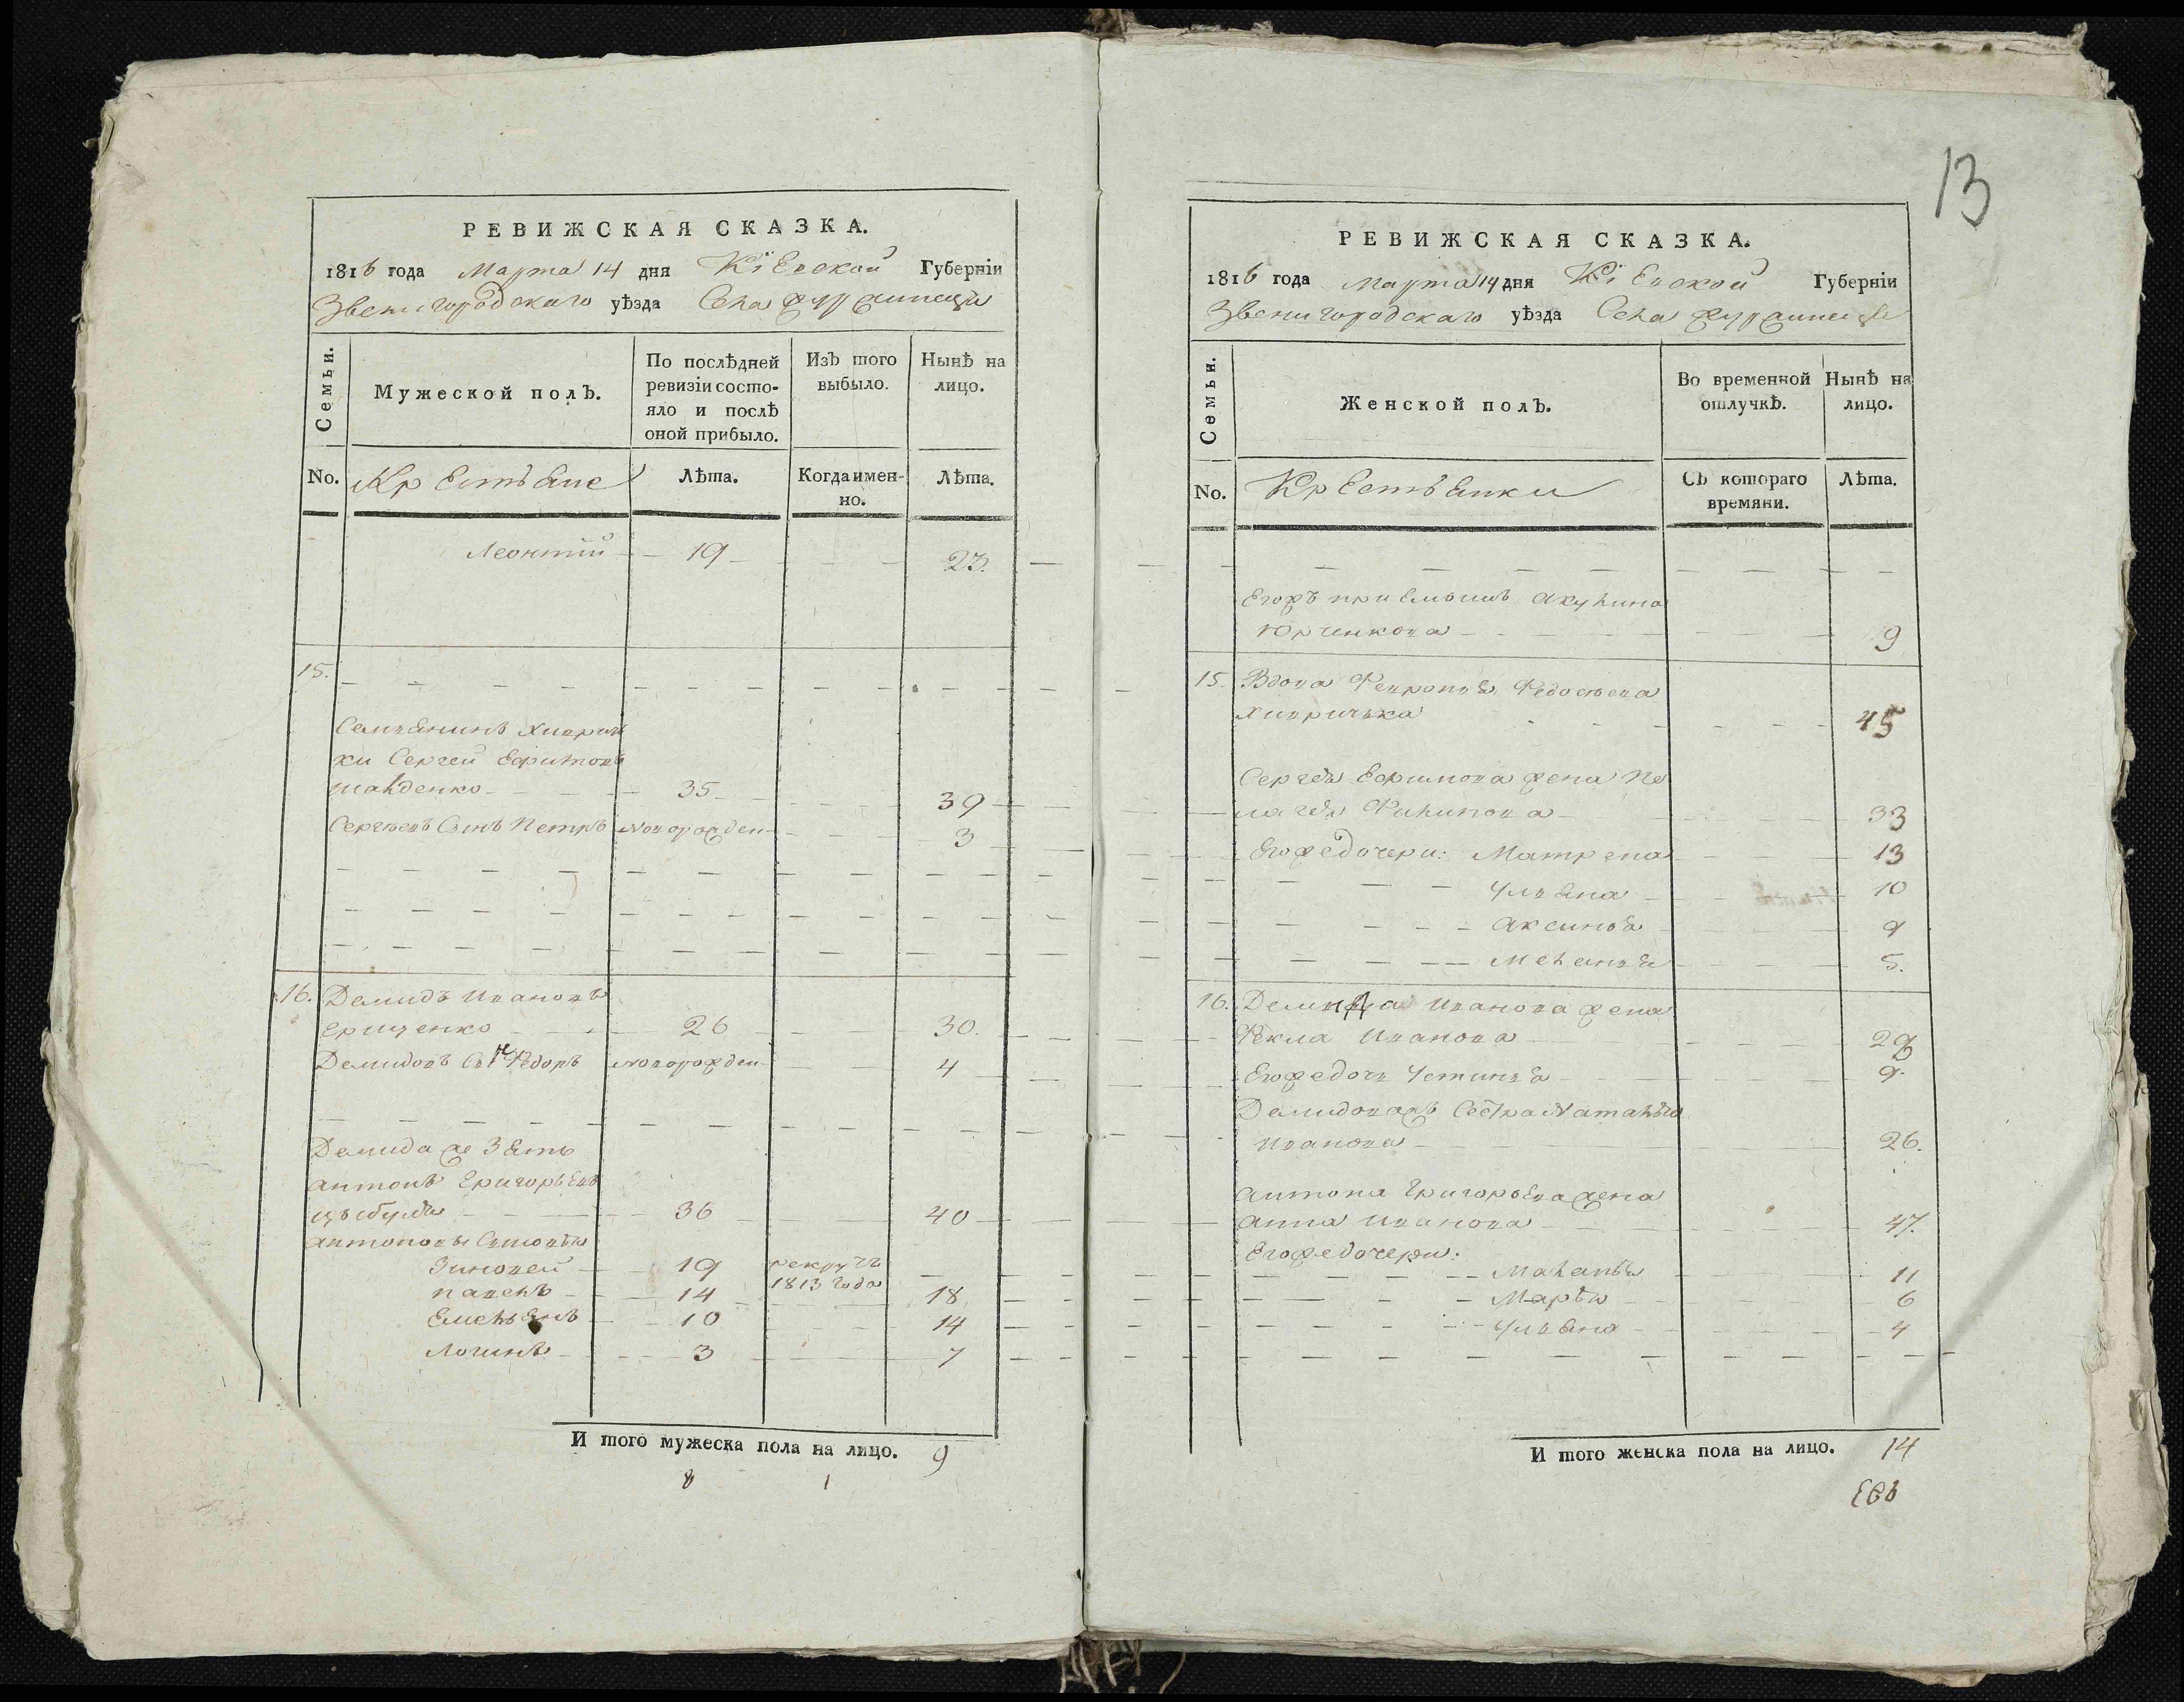 РЕВИЖСКАЯ СКАЗКА.
1816 года Марта 14 дня Кіевской Губерніи
Звенигородскаго уѣзда Села
Семьи.
Мужеской полъ.
По послѣдней ревизіи состояло и послѣ оной прибыло.
Изъ того выбыло.
Нынѣ на лицо.
No. Крестьяне Лѣта. Когда именно. Лѣта.
Леонтій 19 23.
15.
ки Сергей Ефимовъ
35 39
Сергѣевъ Сынъ Петръ новорожден 3
16. Демидъ Ивановъ
Грищенко 26 30.
Демидовъ Сынъ Федоръ новорожден 4
Демида же Зять
Антонъ Григорьевъ
36 40
Антоновы Сыновья
Зиновей 19 рекрутъ 1813 года
Павелъ 14 18
Емельянъ 10 14
Логинъ 3 7
И того мужеска пола на лицо. 9
8 1
13
РЕВИЖСКАЯ СКАЗКА.
1816 года Марта 14 дня Кіевской Губерніи
Звенигородскаго уѣзда Села
Семьи.
Женской полъ.
Во временной отлучкѣ.
Нынѣ на лицо.
No. Крестьянки Съ котораго времяни. Лѣта.
Егожъ приемышъ Акулина
Юрченкова 9
15. Вдова Февронія Федосѣева
45
Сергея Ефимова жена Пе
лагея Филипова 33
Егожедочери: Матрена 13
Ульяна 10
Аксинья 9
Меланья 5.
16. Демида Иванова жена
Фекла Иванова 29
Егожедочь Устинья 9.
Демидовахъ Сестра Наталья
Иванова 26.
Антона Григорьева жена
Анна Иванова 47.
Егожедочери:
Маланья 11
Марья 6
Ульяна 4
И того женска пола на лицо. 14